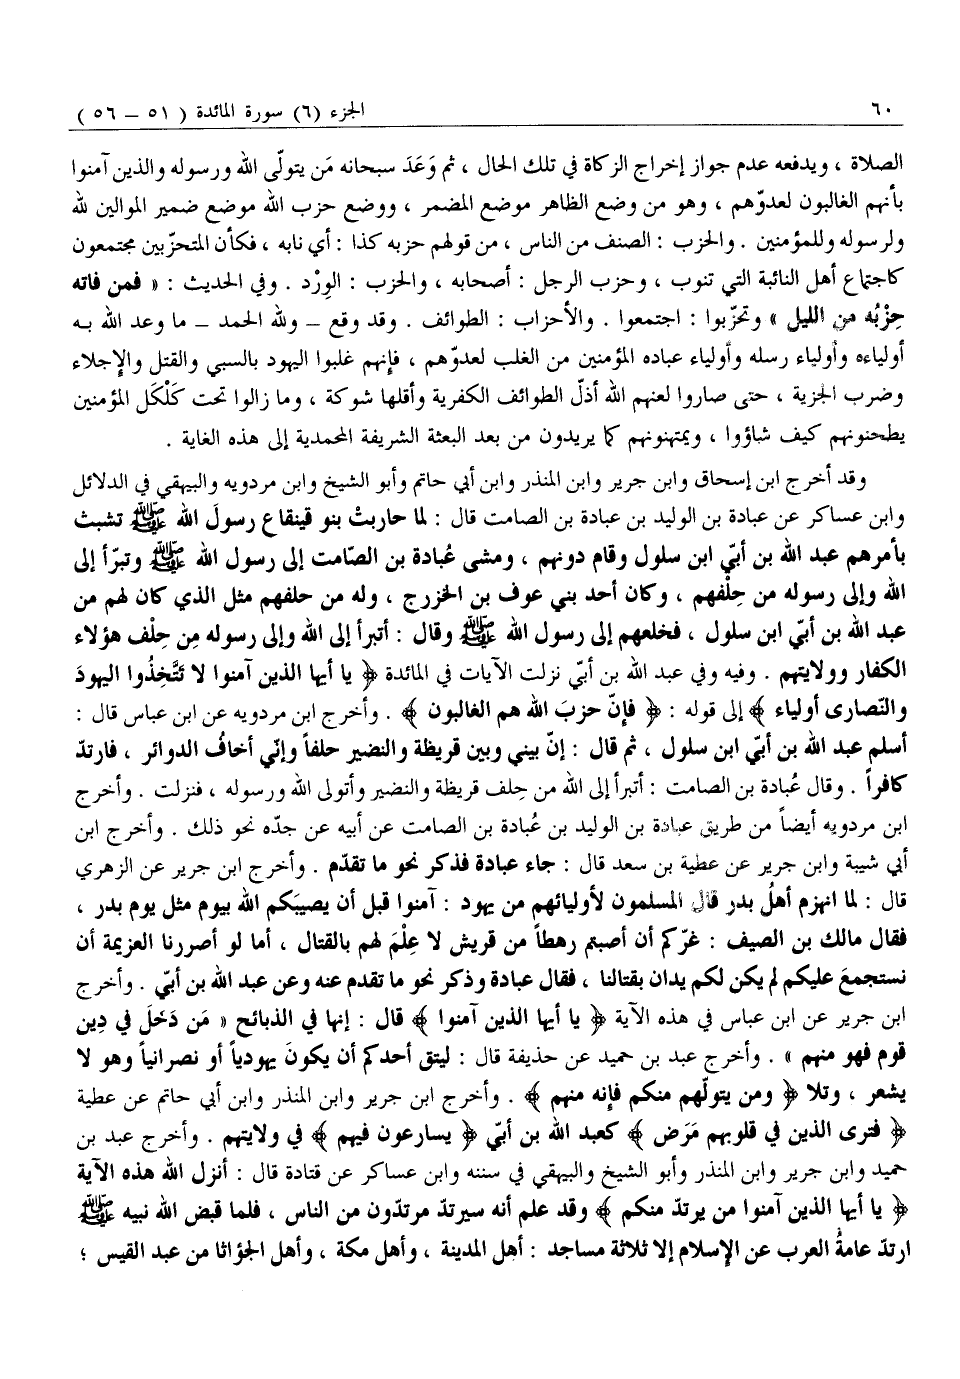 ٦٠
الجزء (٦) سورة المائدة ( ٥١ – ٥٦ )
الصلاة ، ويدفعه عدم جواز إخراج الزكاة في تلك الحال ، ثم وَعَدَ سبحانه مَن يتولّى الله ورسوله والذين آمنوا
بأنهم الغالبون لعدوّهم ، وهو من وضع الظاهر موضع المضمر ، ووضع حزب الله موضع ضمير الموالين لله
ولرسوله وللمؤمنين . والحزب : الصنف من الناس ، من قولهم حزبه كذا : أي نابه ، فكأن المتحزّبين مجتمعون
كاجتماع أهل النائبة التي تنوب ، وحزب الرجل : أصحابه ، والحزب : الوِرْد . وفي الحديث : « فمن فاته
حِزْبُه من الليل » وتحزّبوا : اجتمعوا . والأحزاب : الطوائف . وقد وقع – ولله الحمد – ما وعد الله به
أولياءه وأولياء رسله وأولياء عباده المؤمنين من الغلب لعدوّهم ، فإنهم غلبوا اليهود بالسبي والقتل والإجلاء
وضرب الجزية ، حتى صاروا لعنهم الله أذلّ الطوائف الكفرية وأقلها شوكة ، وما زالوا تحت كَلْكَل المؤمنين
يطحنونهم كيف شاؤوا ، ويمتهنونهم كما يريدون من بعد البعثة الشريفة المحمدية إلى هذه الغاية .
وقد أخرج ابن إسحاق وابن جرير وابن المنذر وابن أبي حاتم وأبو الشيخ وابن مردويه والبيهقي في الدلائل
وابن عساكر عن عبادة بن الوليد بن عبادة بن الصامت قال : لما حاربتْ بنو قينقاع رسولَ الله ﷺ تشبث
بأمرهم عبد الله بن أبيّ ابن سلول وقام دونهم ، ومشى عُبادة بن الصّامت إلى رسول الله ﷺ وتبرّأ إلى
الله وإلى رسوله من حِلْفهم ، وكان أحد بني عوف بن الخزرج ، وله من حلفهم مثل الذي كان لهم من
عبد الله بن أبيّ ابن سلول ، فخلعهم إلى رسول الله ﷺ وقال : أتبرأ إلى الله وإلى رسوله مِن حِلْف هؤلاء
الكفار وولايتهم . وفيه وفي عبد الله بن أبيّ نزلت الآيات في المائدة ﴿ يا أيها الذين آمنوا لا تتَّخِذُوا اليهودَ
والنّصارى أولياء ﴾ إلى قوله : ﴿ فإنّ حزبَ الله هم الغالبون ﴾ . وأخرج ابن مردويه عن ابن عباس قال :
أسلم عبد الله بن أبيّ ابن سلول ، ثم قال : إنّ بيني وبين قريظة والنضير حلفاً وإنّي أخافُ الدوائر ، فارتدّ
كافراً . وقال عُبادة بن الصامت : أتبرأ إلى الله من حِلف قريظة والنضير وأتولى الله ورسوله ، فنزلت . وأخرج
ابن مردويه أيضاً من طريق عبادة بن الوليد بن عُبادة بن الصامت عن أبيه عن جدّه نحو ذلك . وأخرج ابن
أبي شيبة وابن جرير عن عطية بن سعد قال : جاء عبادة فذكر نحو ما تقدّم . وأخرج ابن جرير عن الزهري
قال : لما انهزم أهلُ بدر قال المسلمون لأوليائهم من يهود : آمنوا قبل أن يصيبَكم الله بيوم مثل يوم بدر ،
فقال مالك بن الصيف : غرّكم أن أصبتم رهطاً من قريش لا عِلْمَ لهم بالقتال ، أما لو أصررنا العزيمة أن
نستجمعَ عليكم لم يكن لكم يدان بقتالنا ، فقال عبادة وذكر نحو ما تقدم عنه وعن عبد الله بن أبيّ . وأخرج
ابن جرير عن ابن عباس في هذه الآية ﴿ يا أيها الذين آمنوا ﴾ قال : إنها في الذبائح « مَن دَخَلَ في دِين
قوم فهو منهم » . وأخرج عبد بن حميد عن حذيفة قال : ليتق أحدكم أن يكونَ يهودياً أو نصرانياً وهو لا
يشعر ، وتلا ﴿ ومن يتولّهم منكم فإنه منهم ﴾ . وأخرج ابن جرير وابن المنذر وابن أبي حاتم عن عطية
﴿ فترى الذين في قلوبهم مَرَض ﴾ كعبد الله بن أبيّ ﴿ يسارعون فيهم ﴾ في ولايتهم . وأخرج عبد بن
حميد وابن جرير وابن المنذر وأبو الشيخ والبيهقي في سننه وابن عساكر عن قتادة قال : أنزل الله هذه الآية
﴿ يا أيها الذين آمنوا من يرتدّ منكم ﴾ وقد علم أنه سيرتدّ مرتدّون من الناس ، فلما قبض الله نبيه ﷺ
ارتدّ عامةُ العرب عن الإسلام إلا ثلاثة مساجد : أهل المدينة ، وأهل مكة ، وأهل الجؤاثا من عبد القيس ؛